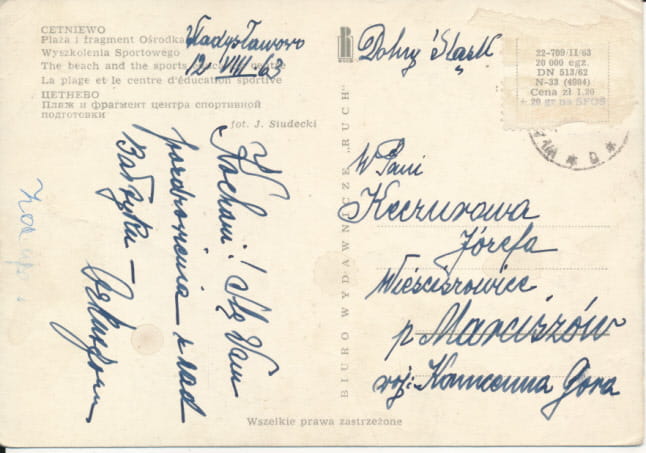 CETNIEWO
Plaża i fragment Ośrodka
Wyszkolenia Sportowego
The beach and the sports centre
La plage et le centre d'éducation sportive
ЦЕТНЕВО
Пляж и фрагмент центра спортивной
подготовки
fot. J. Siudecki
Władysławowo
12 VIII. 63
Kochani! Ślę Wam
pozdrowienia z nad
Bałtyku –
BIURO WYDAWNICZE „RUCH"
Dolny Śląsk
22-709/II/63
20 000 egz.
DN 513/62
N-33 (4904)
Cena zł 1.20
+ 20 gr na SFOS
W Pani
Józefa
Wieściszowice
p Marciszów
woj: Kamienna Gora
Wszelkie prawa zastrzeżone